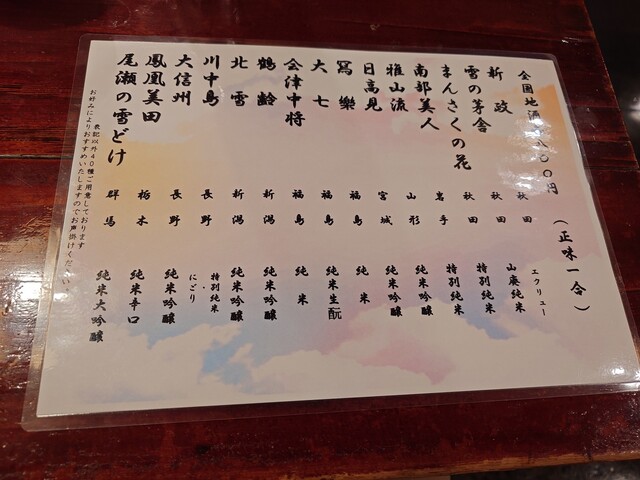 全国地酒 八〇〇円 (正味一合)
新政 秋田 山廃純米 エクリュー
雪の茅舎 秋田 山廃純米
まんさくの花 秋田 特別純米
南部美人 岩手 特別純米
雅山流 山形 純米吟醸
日高見 宮城 純米吟醸
冩樂 福島 純米
大七 福島 純米生酛
会津中将 福島 純米
鶴齢 新潟 純米吟醸
北雪 新潟 純米吟醸
川中島 長野 特別純米 にごり
大信州 長野 純米吟醸
鳳凰美田 栃木 純米辛口
尾瀬の雪どけ 群馬 純米大吟醸
表記以外40種ご用意しております
お好みによりおすすめいたしますのでお声掛けください。